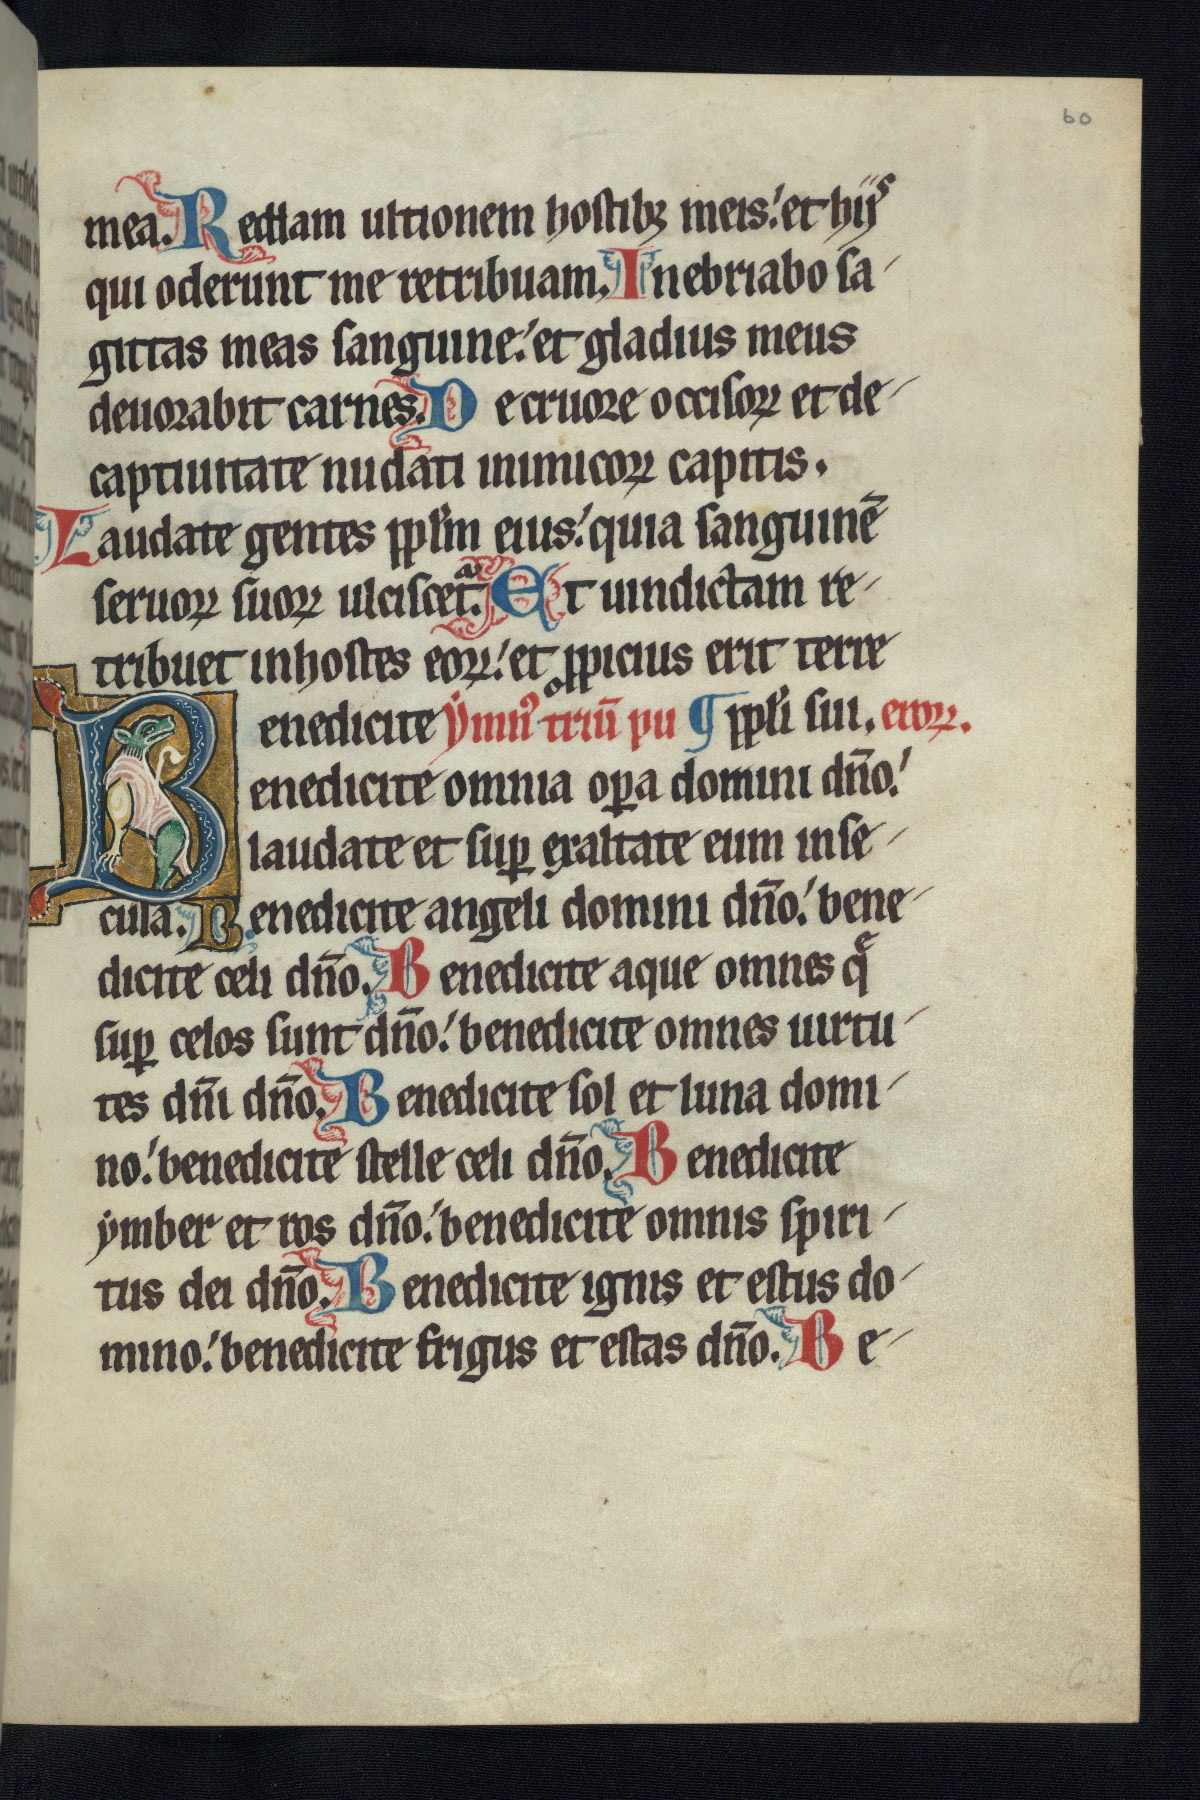 60
mea. Reddam ultionem hostibꝫ meis: et hijs
qui oderunt me retribuam. Inebriabo sa-
gittas meas sanguine: et gladius meus
deuorabit carnes. De cruore occisoꝝ et de-
captiuitate nudati inimicoꝝ capitis.
Laudate gentes ppl̄m eius: quia sanguinē
seruoꝝ suoꝝ ulciscet̄. Et uindictam re-
tribuet in hostes eoꝝ: et ꝓpicius erit terre
enedicite ẏmnꝰ triū pu ¶ ppl̄i sui. eroꝝ.
Benedicite omnia oꝑa domini dn̄o:
laudate et suꝑ exaltate eum in se-
cula. Benedicite angeli domini dn̄o: bene-
dicite celi dn̄o. Benedicite aque omnes qͤ
suꝑ celos sunt dn̄o: benedicite omnes uirtu-
tes dn̄i dn̄o. Benedicite sol et luna domi-
no: benedicite stelle celi dn̄o. Benedicite
ẏmber et ros dn̄o: benedicite omnis spiri-
tus dei dn̄o. Benedicite ignis et estus do-
mino: benedicite frigus et estas dn̄o. Be-